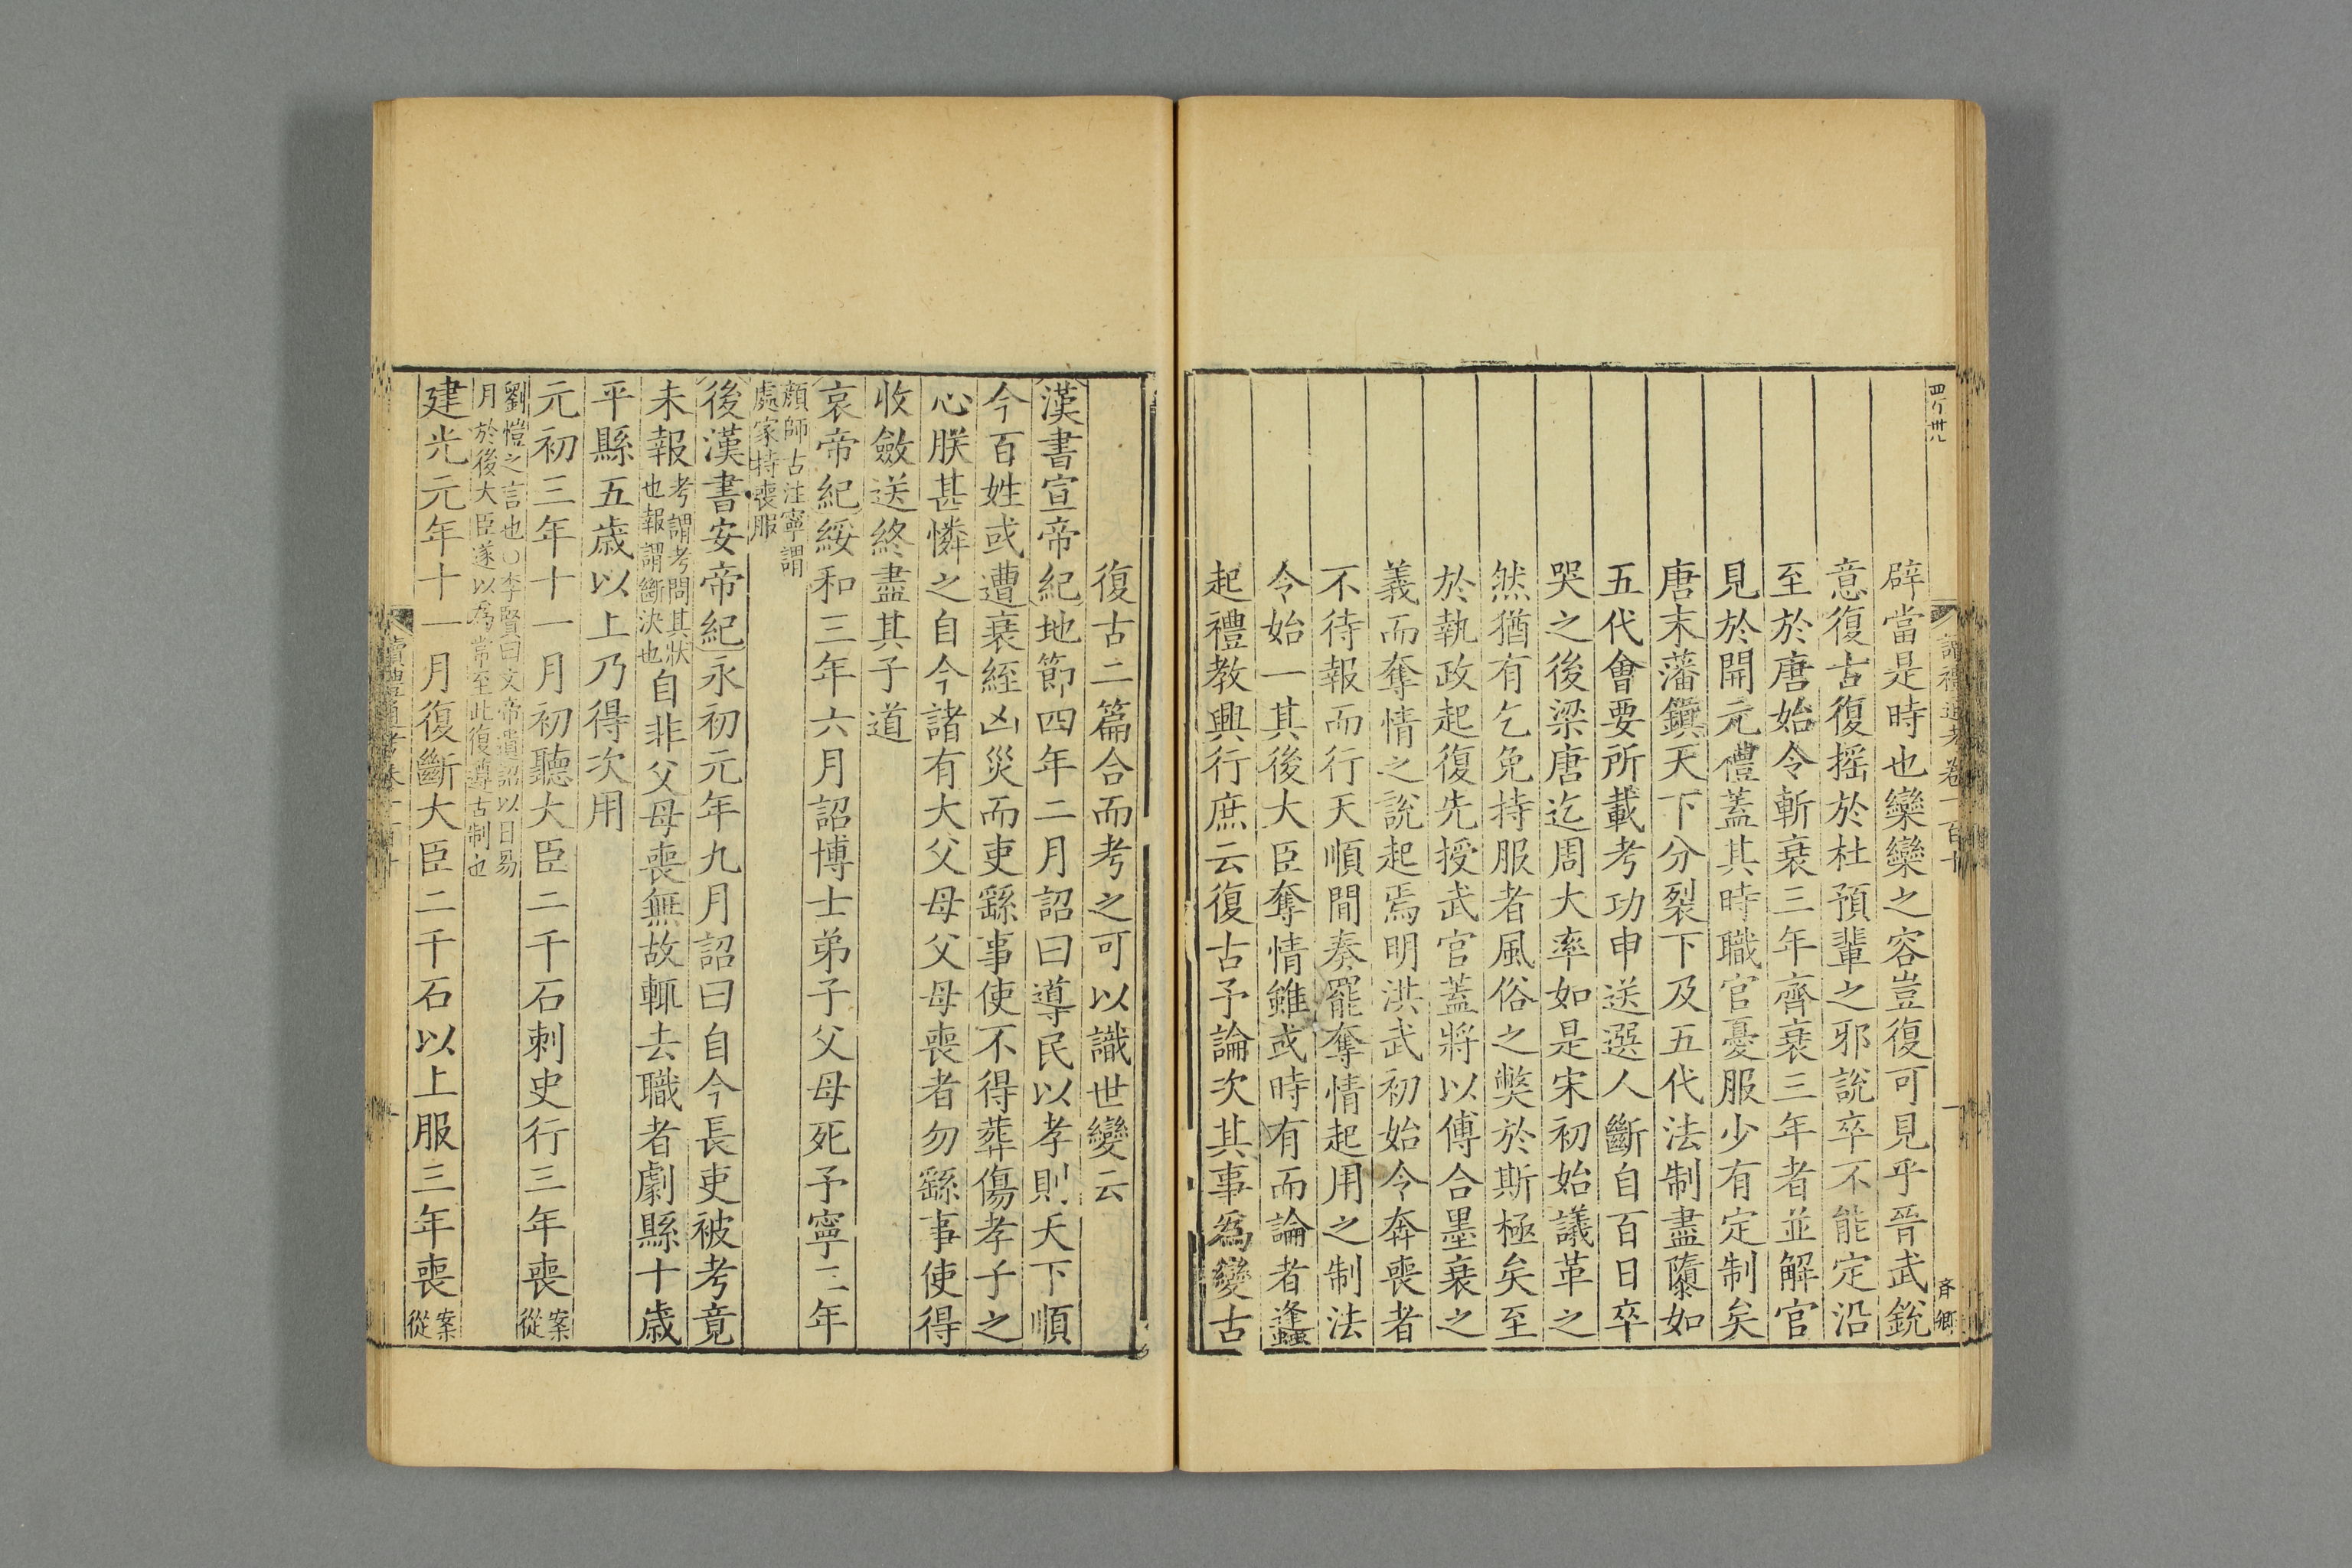 四个卅八
讀禮通考卷一百十
一
斉卿
辟當是時也欒欒之容豈復可見乎晉武銳
意復古復搖於杜預輩之邪說卒不能定沿
至於唐始令斬衰三年齊衰三年者並解官
見於開元禮蓋其時職官憂服少有定制矣
唐末藩鎮天下分裂下及五代法制盡隳如
五代會要所載考功申送選人斷自百日卒
哭之後梁唐迄周大率如是宋初始議革之
然猶有乞免持服者風俗之獘於斯極矣至
於執政起復先授武官蓋將以傅合墨衰之
義而奪情之說起焉明洪武初始令奔喪者
不待報而行天順間奏罷奪情起用之制法
令始一其後大臣奪情雖或時有而論者蠭
起禮教興行庶云復古予論次其事為變古
復古二篇合而考之可以識世變云
漢書宣帝紀地節四年二月詔曰導民以孝則天下順
今百姓或遭衰絰凶災而吏繇事使不得葬傷孝子之
心朕甚憐之自今諸有大父母父母喪者勿繇事使得
收斂送終盡其子道
哀帝紀綏和三年六月詔博士弟子父母死予寧三年
顏師古注寧謂
處家持喪服
後漢書安帝紀永初元年九月詔曰自今長吏被考竟
未報考謂考問其狀也報謂斷決也自非父母喪無故輒去職者劇縣十歲
平縣五歲以上乃得次用
元初三年十一月初聽大臣二千石刺史行三年喪案從
劉愷之言也○李賢曰文帝遺詔以日易
月於後大臣遂以為常至此復遵古制也
建光元年十一月復斷大臣二千石以上服三年喪案從
讀禮通考卷一百十